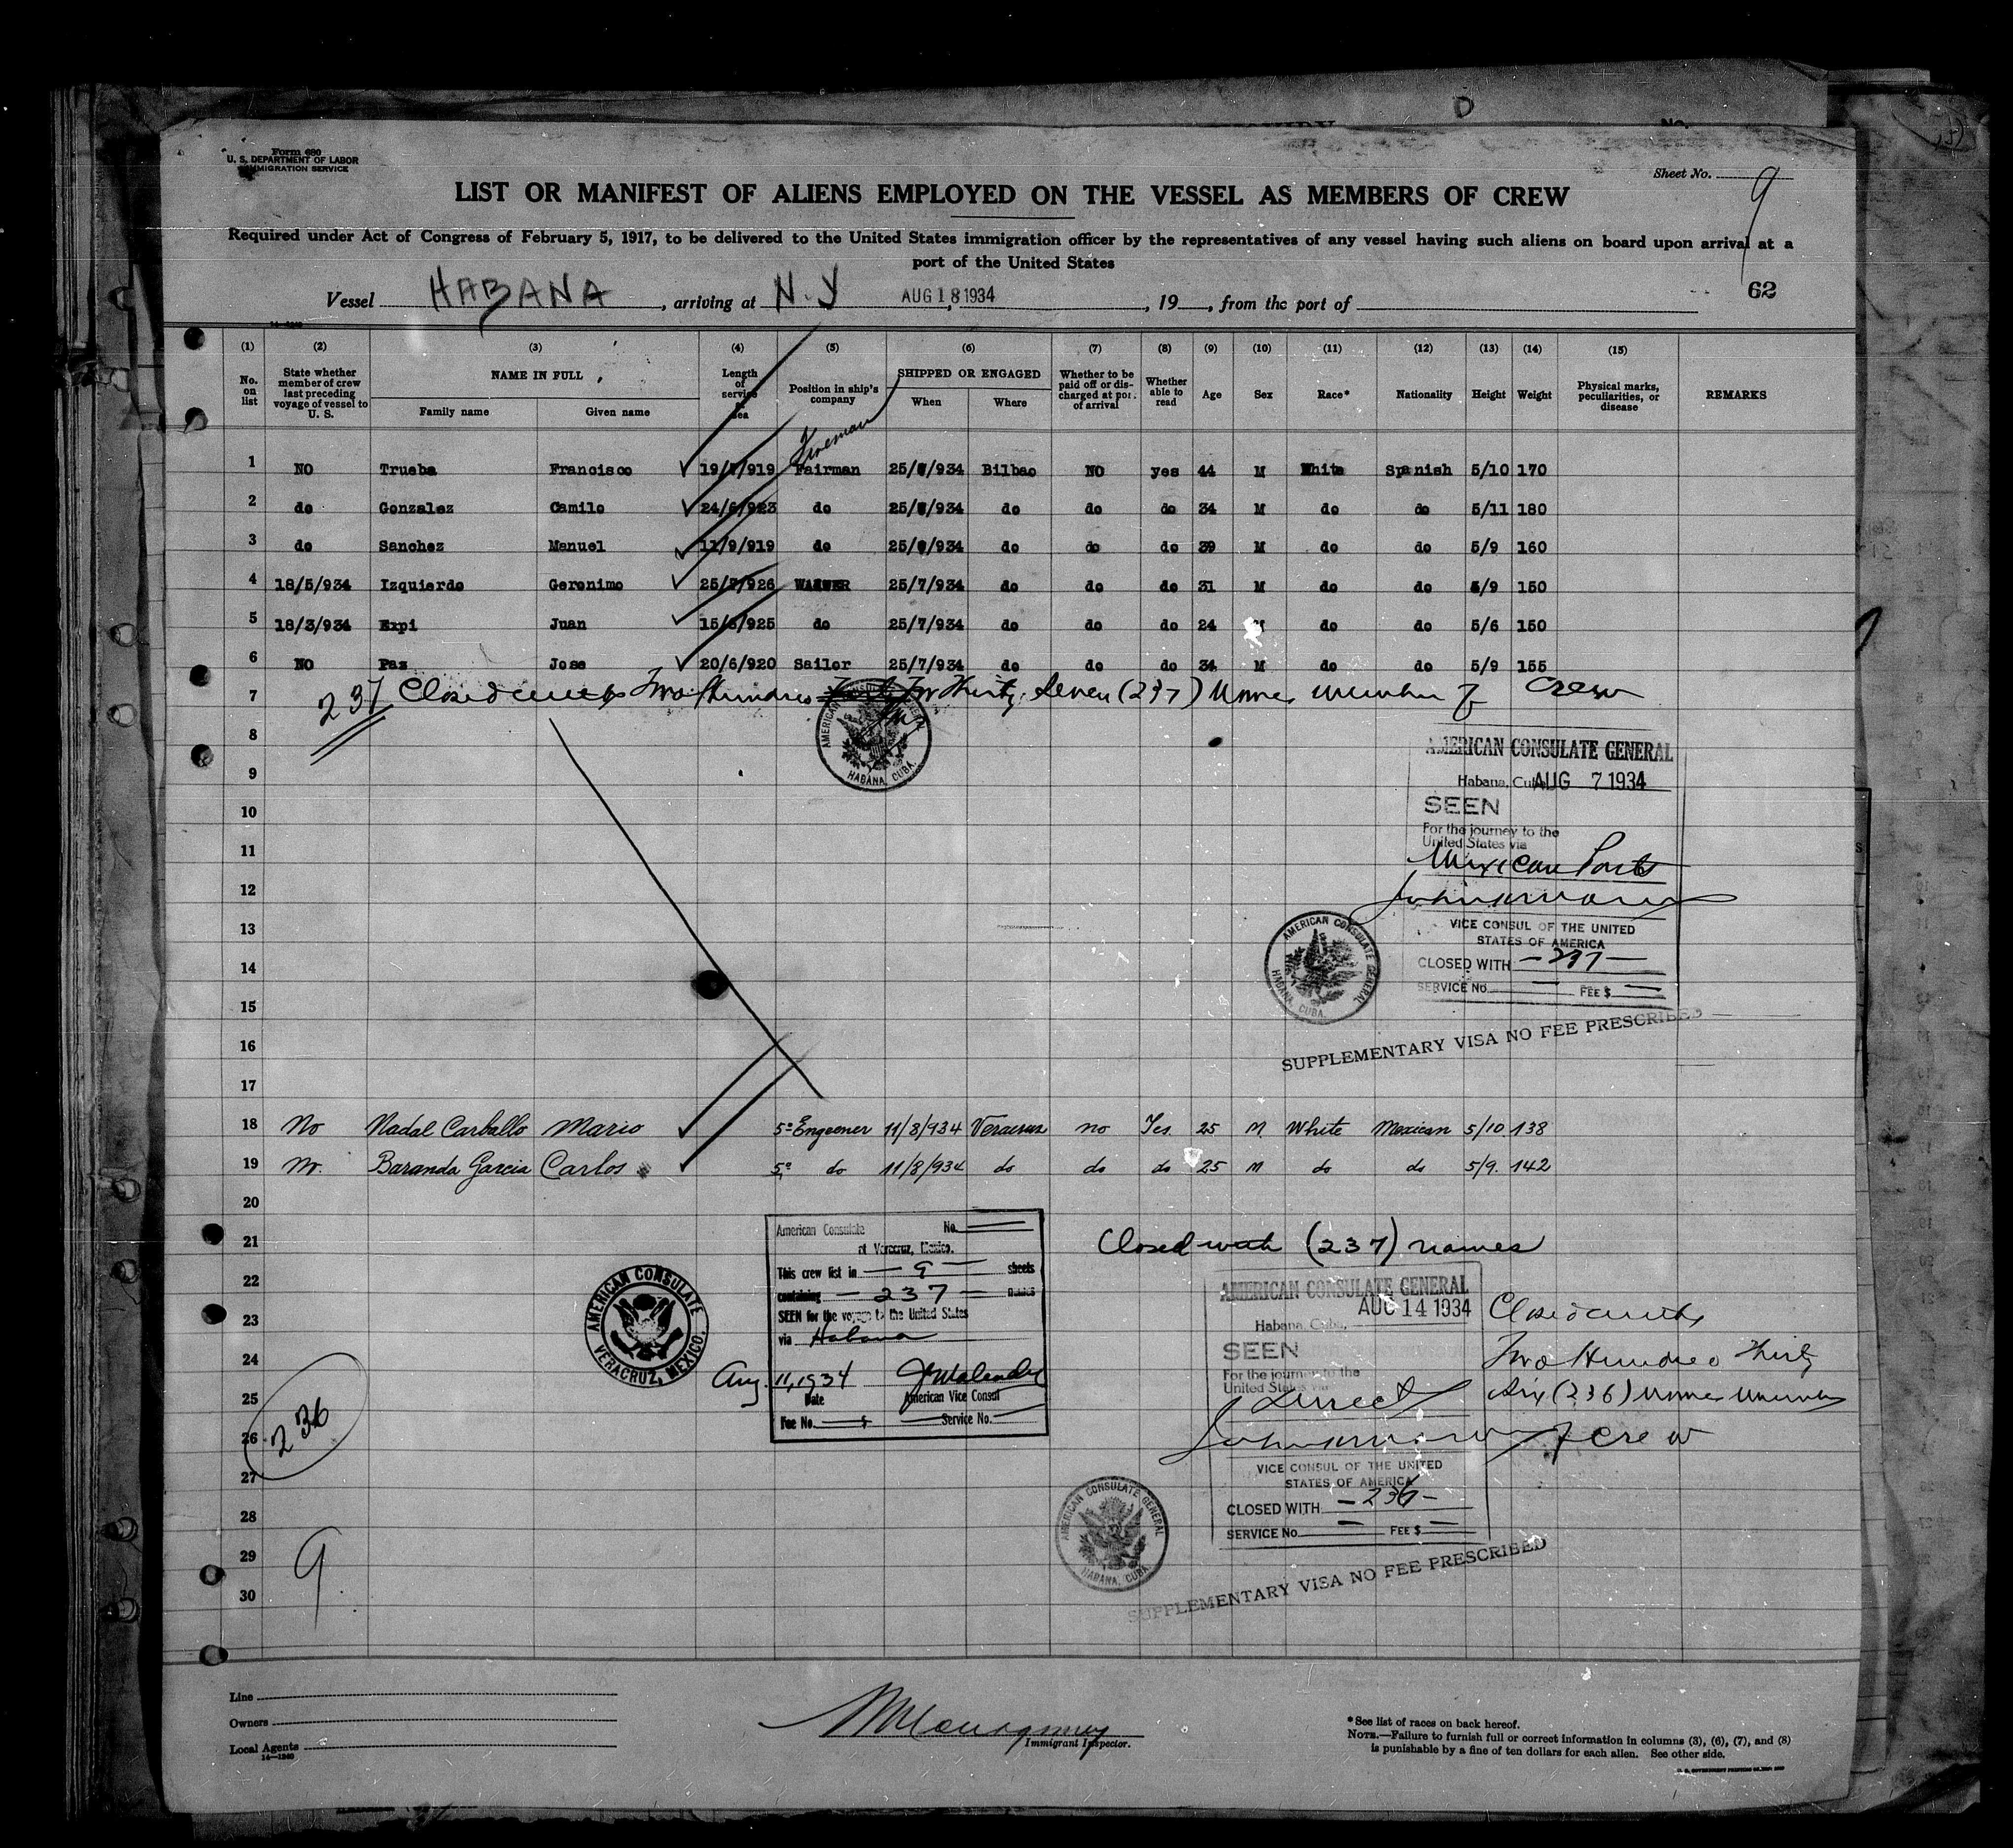 Form 680
U. S. DEPARTMENT OF LABOR
IMMIGRATION SERVICE
Sheet No. 9
LIST OR MANIFEST OF ALIENS EMPLOYED ON THE VESSEL AS MEMBERS OF CREW
Required under Act of Congress of February 5, 1917, to be delivered to the United States immigration officer by the representatives of any vessel having such aliens on board upon arrival at a
port of the United States
62
Vessel HABANA, arriving at N.Y AUG 18 1934, 19, from the port of
14-1240
(1) (2) (3) (4) (5) (6) (7) (8) (9) (10) (11) (12) (13) (14) (15)
No. on list State whether member of crew last preceding voyage of vessel to U. S. NAME IN FULL Family name Given name Length of service at sea Position in ship's company SHIPPED OR ENGAGED When Where Whether to be paid off or discharged at port of arrival Whether able to read Age Sex Race* Nationality Height Weight Physical marks, peculiarities, or disease REMARKS
Fireman
1 NO Trueba Francisco 19/7/919 Fairman 25/7/934 Bilbao NO yes 44 M White Spanish 5/10 170
2 do Gonzalez Camilo 24/6/923 do 25/7/934 do do do 34 M do do 5/11 180
3 do Sanchez Manuel 11/9/919 do 25/7/934 do do do 39 M do do 5/9 160
4 18/5/934 Izquierdo Geronimo 25/7/926 25/7/934 do do do 31 M do do 5/9 150
5 18/3/934 Expi Juan 15/6/925 do 25/7/934 do do do 24 M do do 5/6 150
6 NO Paz Jose 20/6/920 Sailor 25/7/934 do do do 34 M do do 5/9 155
7 237 Closed with Two Hundred Thirty Seven (237) Names member of crew
8
AMERICAN CONSULATE GENERAL
HABANA, CUBA.
AMERICAN CONSULATE GENERAL
9
Habana, Cuba AUG 7 1934
10
SEEN
For the journey to the
United States via
11
Mexican Ports
12
13
VICE CONSUL OF THE UNITED
STATES OF AMERICA
AMERICAN CONSULATE GENERAL
HABANA, CUBA.
14
CLOSED WITH -237-
SERVICE No. - FEE $ -
15
SUPPLEMENTARY VISA NO FEE PRESCRIBED
16
17
18 No Nadal Carballo Mario 5º Engeener 11/8/934 Veracruz no Yes 25 M. White Mexican 5/10 138
19 No. Baranda Garcia Carlos 5º do 11/8/934 do do do 25 M do do 5/9. 142
20
American Consulate No.
at Veracruz, Mexico.
21
Closed with (237) names
This crew list in - 9 - sheets
22
containing - 237 - names
SEEN for the voyage to the United States
via Habana
AMERICAN CONSULATE
VERACRUZ, MEXICO.
Aug. 11, 1934
Date American Vice Consul
Fee No. $ Service No.
AMERICAN CONSULATE GENERAL
AUG 14 1934
Habana, Cuba,
23
SEEN
For the journey to the
United States via
Direct
Closed with
Two Hundred Thirty
Six (236) Names members
of crew
24
25
236
26
27
VICE CONSUL OF THE UNITED
STATES OF AMERICA
CLOSED WITH -236-
SERVICE No. - FEE $ -
28
AMERICAN CONSULATE GENERAL
HABANA, CUBA.
29
9
SUPPLEMENTARY VISA NO FEE PRESCRIBED
30
Line
Owners
Local Agents
14-1240
Immigrant Inspector.
*See list of races on back hereof.
NOTE.—Failure to furnish full or correct information in columns (3), (6), (7), and (8)
is punishable by a fine of ten dollars for each alien. See other side.